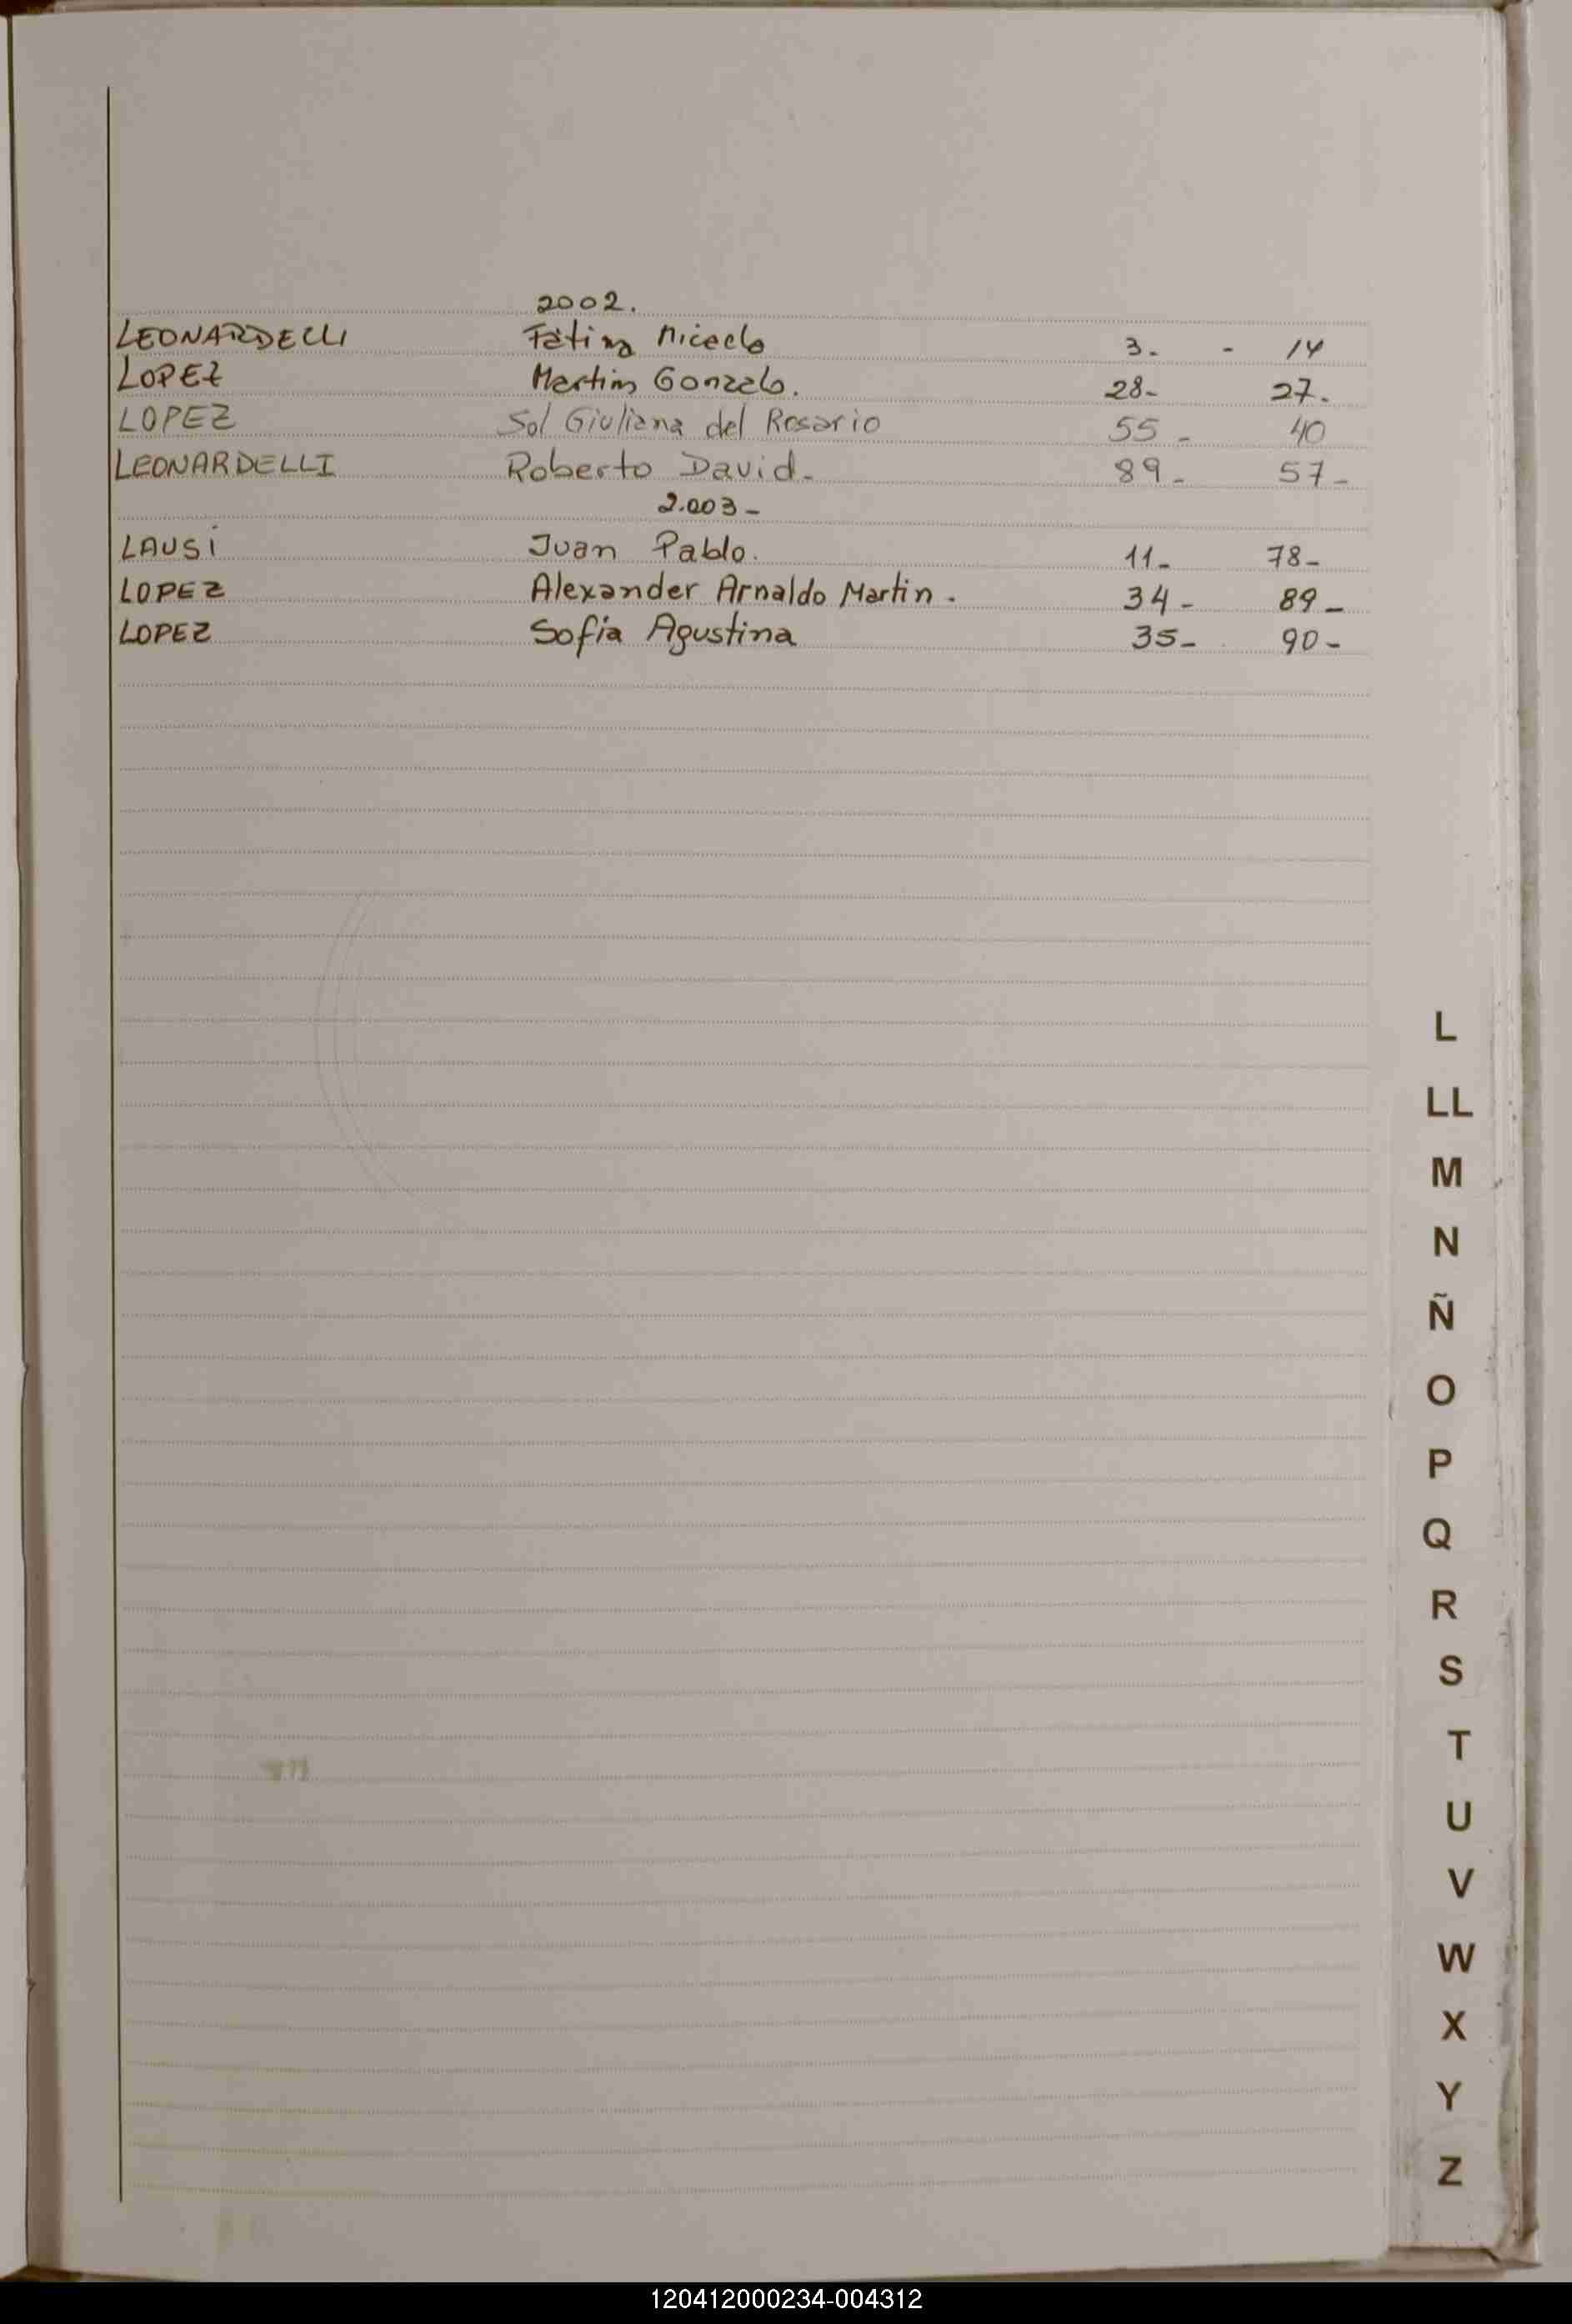 2002.
LEONARDELLI Fátima Micaela 3. - 14
LOPEZ Martin Gonzalo. 28- 27.
LOPEZ Sol Giuliana del Rosario 55- 40
LEONARDELLI Roberto David- 89- 57-
2.003-
LAUSI Juan Pablo. 11- 78-
LOPEZ Alexander Arnaldo Martin. 34- 89-
LOPEZ Sofia Agustina 35- 90-
L
LL
M
N
Ñ
O
P
Q
R
S
T
U
V
W
X
Y
Z
120412000234-004312